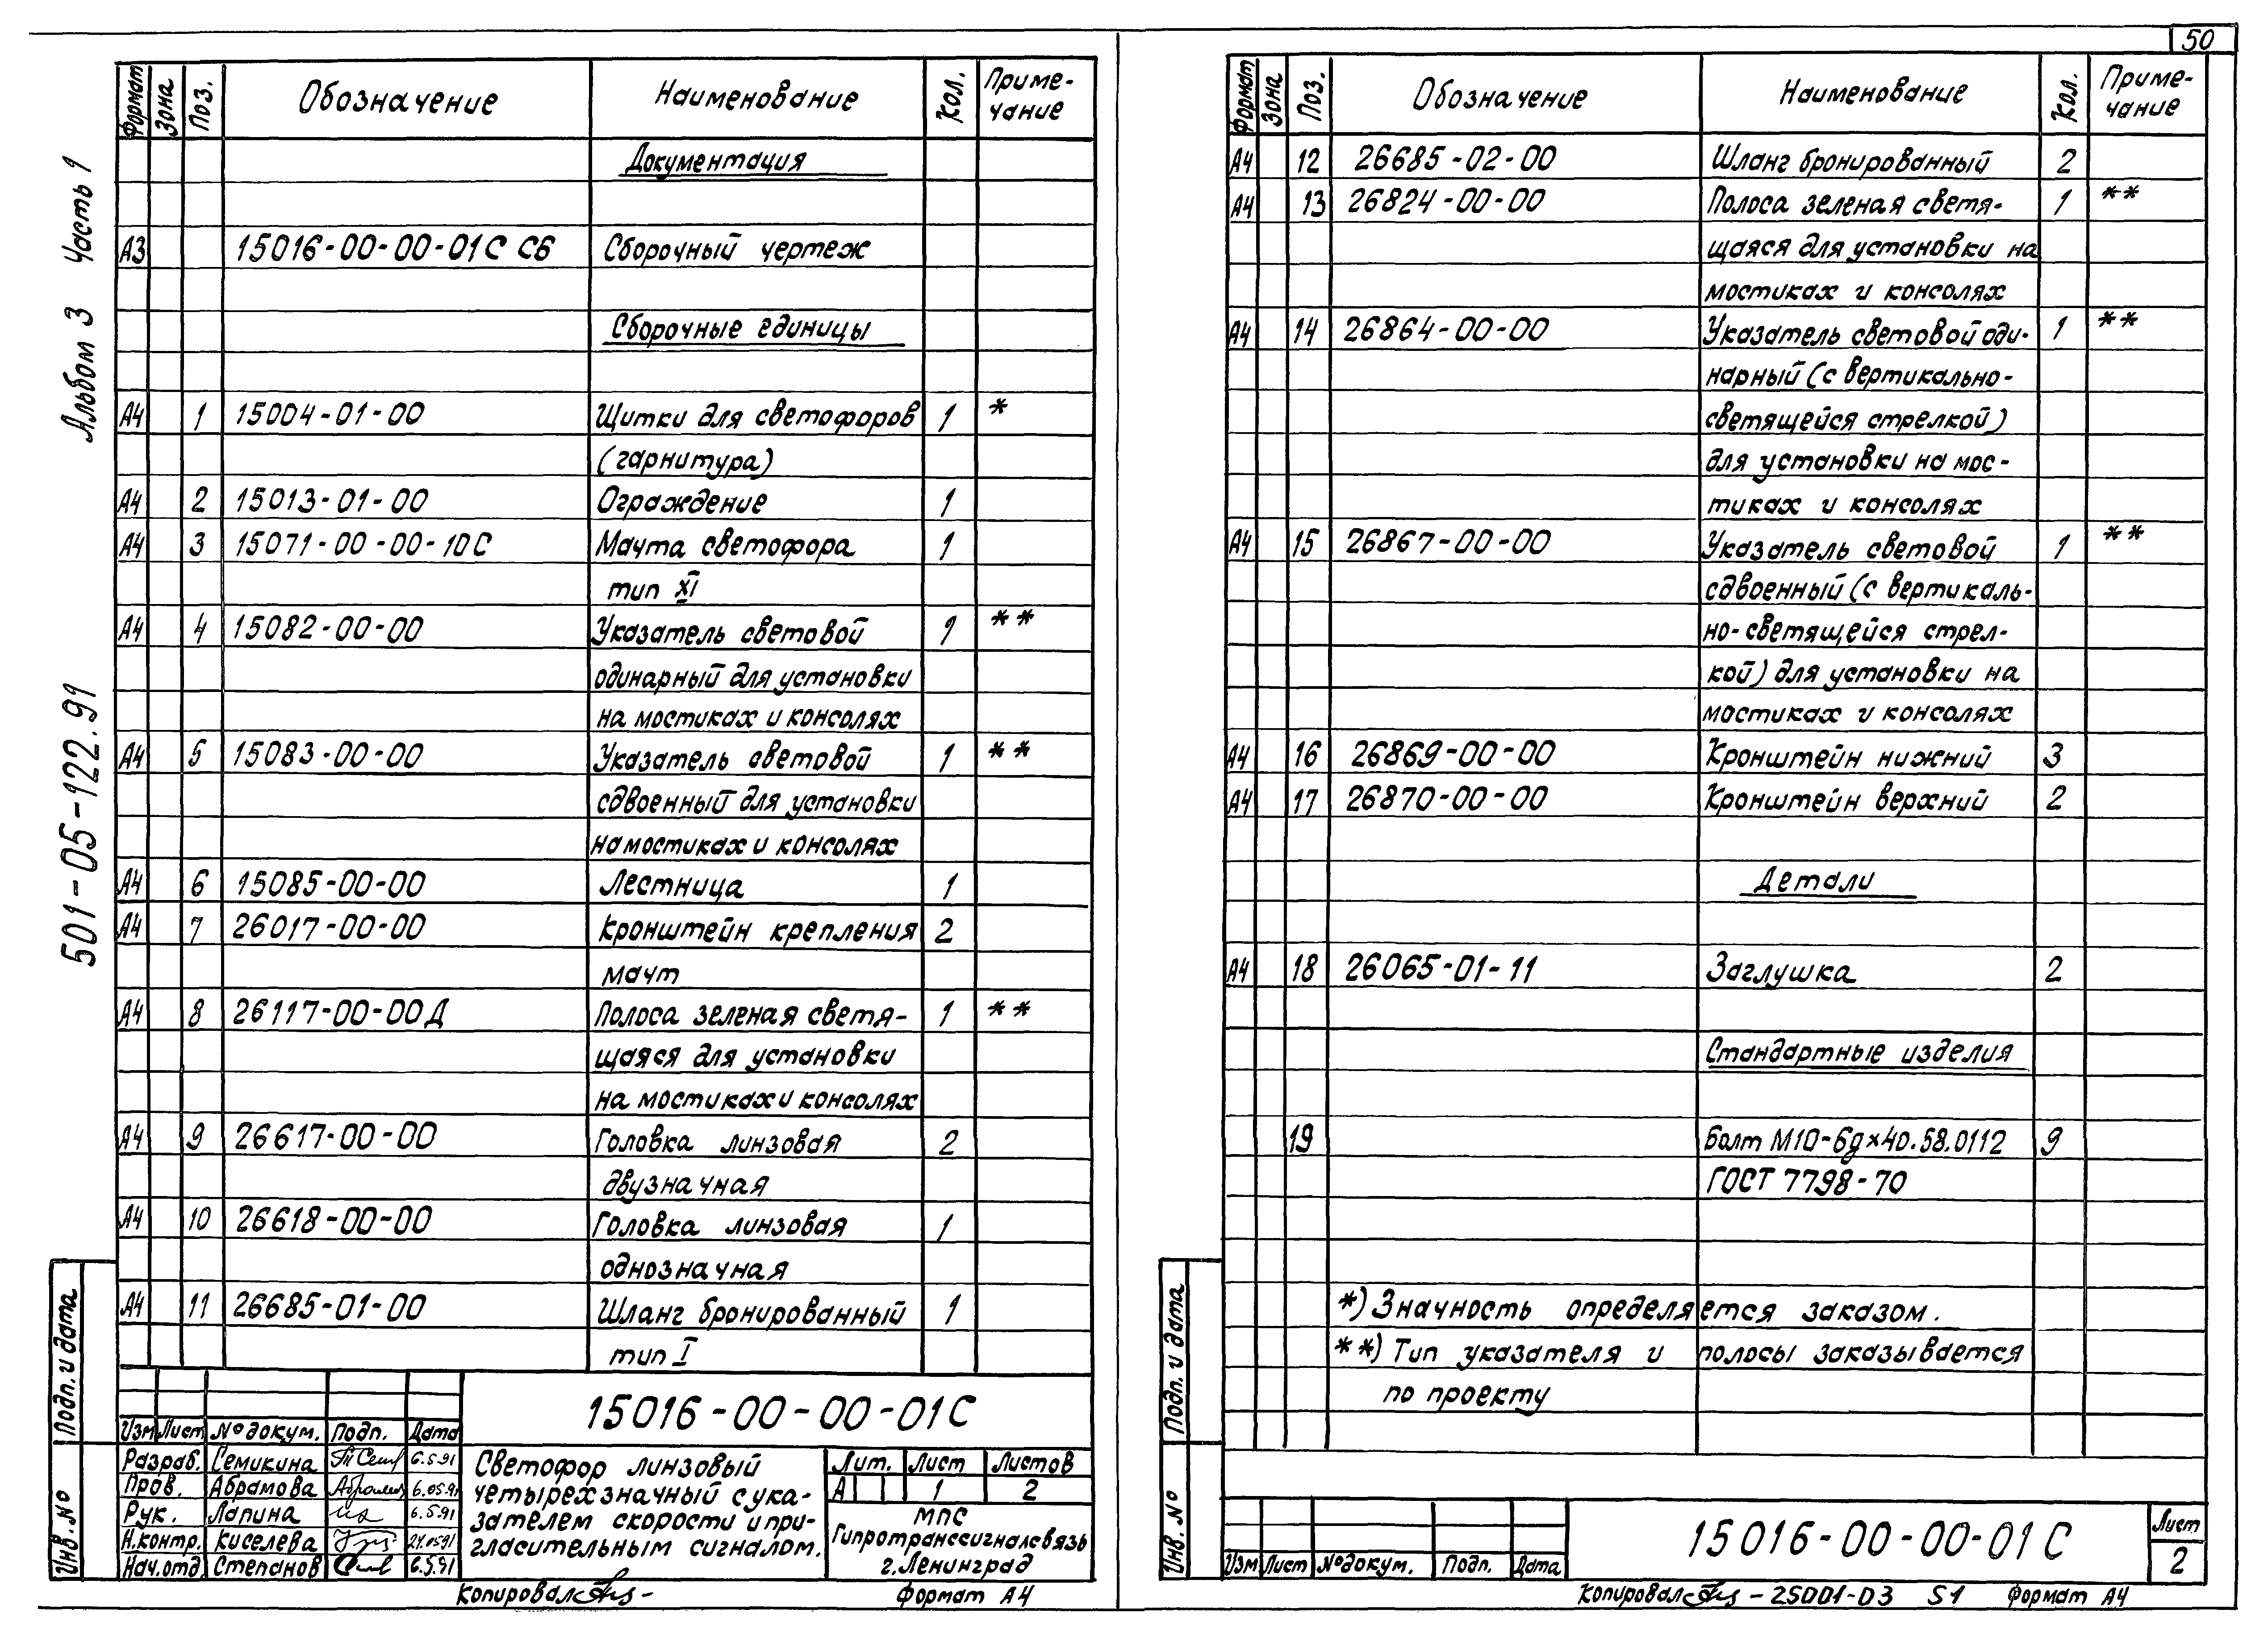 50
Альбом 3 Часть 1
501-05-122.91
Формат Зона Поз. Обозначение Наименование Кол. Приме-
чание
Документация
А3 15016-00-00-01С СБ Сборочный чертеж
Сборочные единицы
А4 1 15004-01-00 Щитки для светофоров 1 *
(гарнитура)
А4 2 15013-01-00 Ограждение 1
А4 3 15071-00-00-10С Мачта светофора 1
тип XI
А4 4 15082-00-00 Указатель световой 1 **
одинарный для установки
на мостиках и консолях
А4 5 15083-00-00 Указатель световой 1 **
сдвоенный для установки
на мостиках и консолях
А4 6 15085-00-00 Лестница 1
А4 7 26017-00-00 Кронштейн крепления 2
мачт
А4 8 26117-00-00Д Полоса зеленая светя- 1 **
щаяся для установки
на мостиках и консолях
А4 9 26617-00-00 Головка линзовая 2
двузначная
А4 10 26618-00-00 Головка линзовая 1
однозначная
А4 11 26685-01-00 Шланг бронированный 1
тип I
15016-00-00-01С
Изм Лист № докум. Подп. Дата
Разраб. Семикина 6.5.91
Пров. Абрамова 6.05.91
Рук. Лапина 6.5.91
Н.контр. Киселева 24.05.91
Нач.отд. Степанов 6.5.91
Светофор линзовый
четырехзначный с ука-
зателем скорости и при-
гласительным сигналом.
Лит. Лист Листов
А 1 2
МПС
Гипротранссигналсвязь
г.Ленинград
Подп. и дата
Инв. №
Копировал Формат А4
Формат Зона Поз. Обозначение Наименование Кол. Приме-
чание
А4 12 26685-02-00 Шланг бронированный 2
А4 13 26824-00-00 Полоса зеленая светя- 1 **
щаяся для установки на
мостиках и консолях
А4 14 26864-00-00 Указатель световой оди- 1 **
нарный (с вертикально-
светящейся стрелкой)
для установки на мос-
тиках и консолях
А4 15 26867-00-00 Указатель световой 1 **
сдвоенный (с вертикаль-
но-светящейся стрел-
кой) для установки на
мостиках и консолях
А4 16 26869-00-00 Кронштейн нижний 3
А4 17 26870-00-00 Кронштейн верхний 2
Детали
А4 18 26065-01-11 Заглушка 2
Стандартные изделия
19 Болт М10-6g×40.58.0112 9
ГОСТ 7798-70
*) Значность определяется заказом.
**) Тип указателя и полосы заказывается
по проекту
Подп. и дата
Инв. №
Изм Лист № докум. Подп. Дата
15016-00-00-01С
Лист
2
Копировал - 25001-03 51 Формат А4